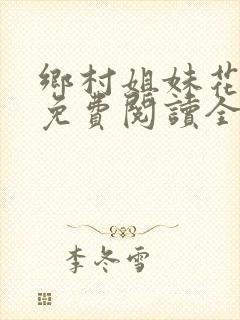 鄉村姐妹花
免費閱讀全
李冬雪